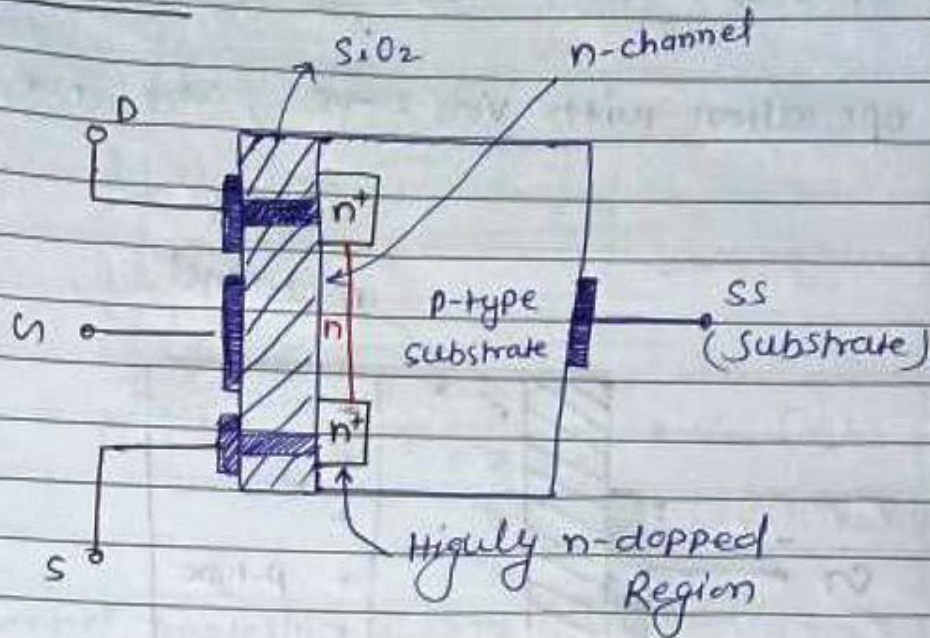 SiO2
n-channel
D
n+
G
n
p-type
substrate
SS
(substrate)
n+
S
Highly n-dopped
Region